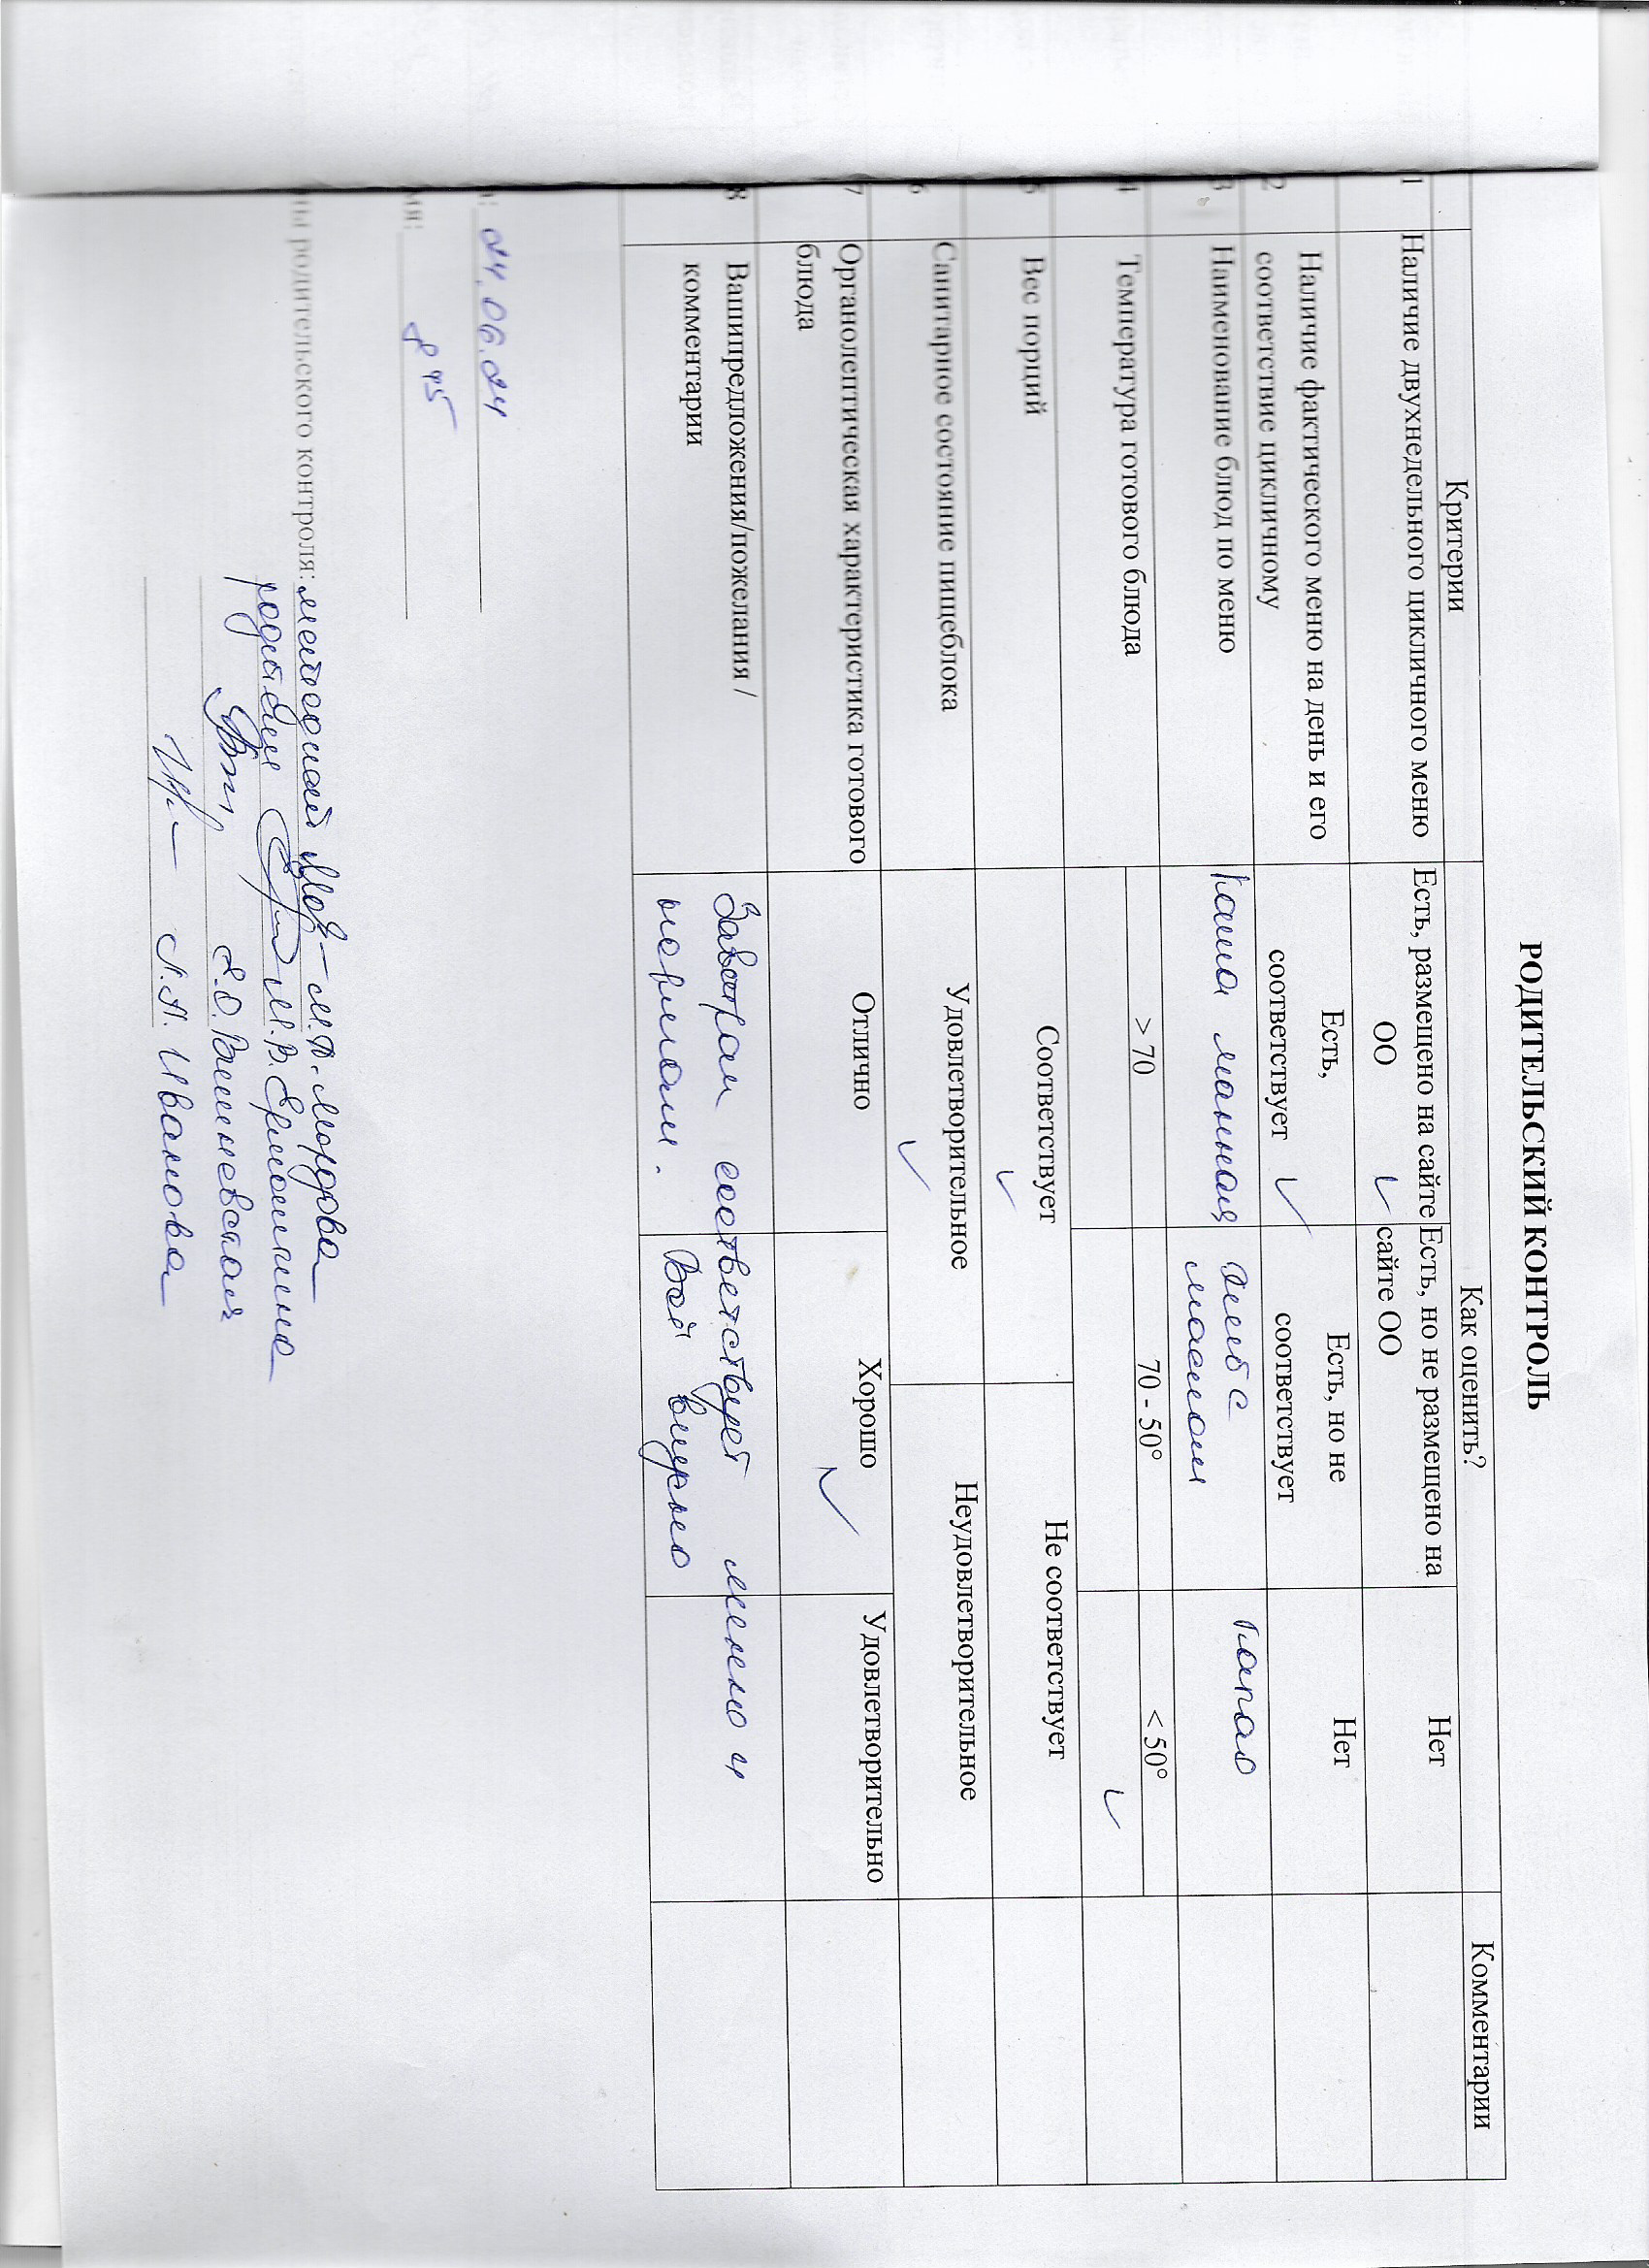 РОДИТЕЛЬСКИЙ КОНТРОЛЬ
Критерии
Как оценить?
Комментарии
1
Наличие двухнедельного цикличного меню
Есть, размещено на сайте ОО ✓
Есть, но не размещено на сайте ОО
Нет
2
Наличие фактического меню на день и его
соответствие цикличному
Есть,
соответствует ✓
Есть, но не
соответствует
Нет
3
Наименование блюд по меню
Каша манная
Хлеб с
маслом
Какао
4
Температура готового блюда
> 70
70 - 50°
< 50°
✓
5
Вес порций
Соответствует
✓
Не соответствует
6
Санитарное состояние пищеблока
Удовлетворительное
✓
Неудовлетворительное
7
Органолептическая характеристика готового
блюда
Отлично
Хорошо
✓
Удовлетворительно
8
Вашипредложения/пожелания /
комментарии
Завтрак соответствует меню и
нормам. Всё вкусно
24.06.24
8 45
родительского контроля:
М.В. Ермошкина
Л.А. Иванова